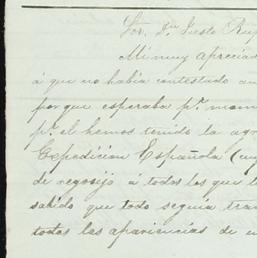 Sor. Dn. Justo Ruf
Mi muy apreciad
á que no había contestado an
porque esperaba pr. mom
pr. el hemos tenido la agr
Expedición Española (cuy
de regosijo á todos los que t
sabido que todo seguía tran
todas las apariencias de u